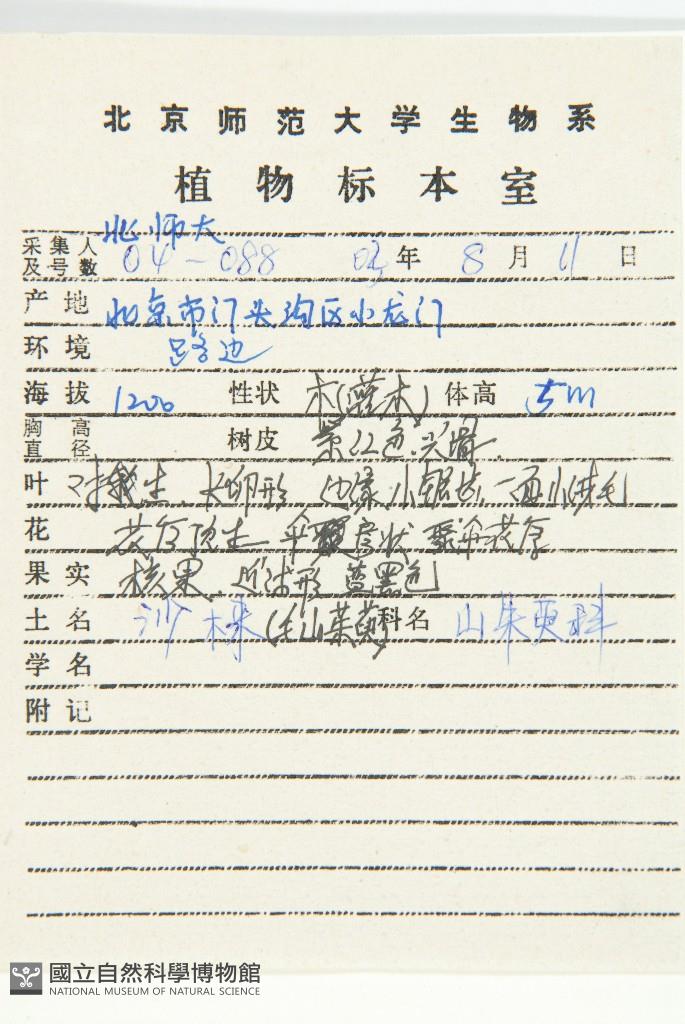 北京师范大学生物系
植物标本室
北师大
采集人及号数 04-088 年 8 月 11 日
产地 北京市门头沟区小龙门
环境 路边
海拔 1200 性状 木(灌木) 体高 5m
胸高直径 树皮 紫红色,光滑.
叶 对生, 长卵形 边缘小锯齿,
花 花序顶生 伞房状 聚伞花序
果实 核果, 近球形 蓝黑色
土名 沙梾(毛山茱萸) 科名 山朱萸科
学名
附记
國立自然科學博物館
NATIONAL MUSEUM OF NATURAL SCIENCE